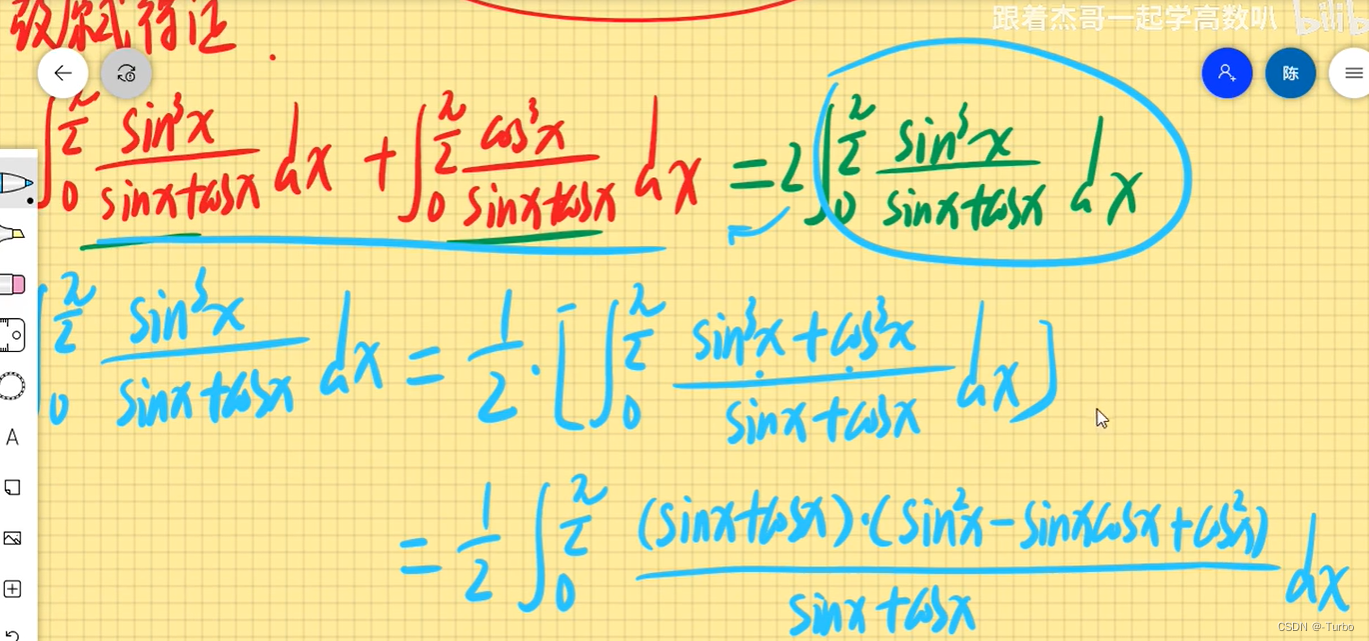 故原式得证.
跟着杰哥一起学高数叭 bilib
陈
∫₀^(π/2) sin³x/(sinx+cosx) dx + ∫₀^(π/2) cos³x/(sinx+cosx) dx = 2∫₀^(π/2) sin³x/(sinx+cosx) dx
∫₀^(π/2) sin³x/(sinx+cosx) dx = 1/2·[∫₀^(π/2) (sin³x+cos³x)/(sinx+cosx) dx]
A
= 1/2 ∫₀^(π/2) (sinx+cosx)·(sin²x-sinxcosx+cos²x)/(sinx+cosx) dx
CSDN @-Turbo